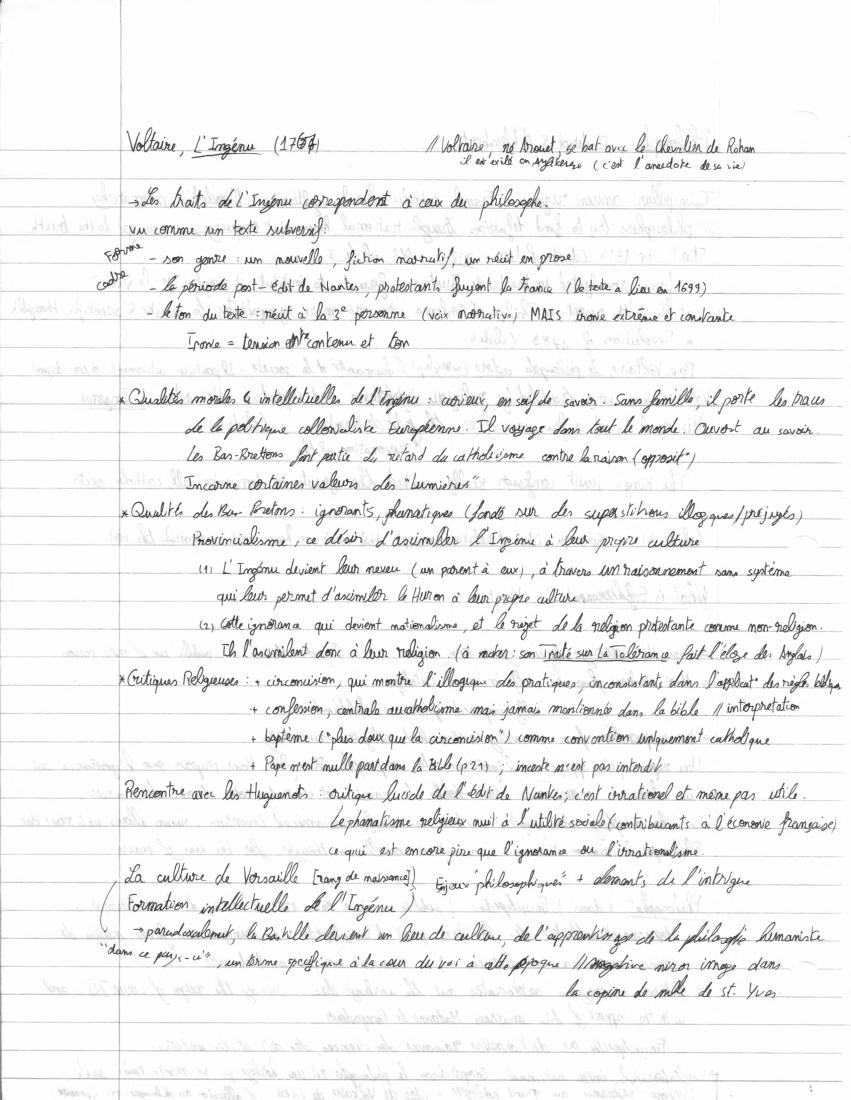 Voltaire, L'Ingénu (1767)
// Voltaire, né Arouet, se bat avec le Chevalier de Rohan
il est exilé en Angleterre (c'est l'anecdote de sa vie)
→ Les traits de l'Ingénu correspondent à ceux du philosophe.
vu comme un texte subversif:
Forme - son genre : un nouvelle, fiction narratif, un récit en prose
cadre - la période post-édit de Nantes, protestants fuyent la France (le texte a lieu en 1699)
- le ton du texte : récit à la 3e personne (voix narrative) MAIS ironie extrême et constante
Ironie = tension entre contenu et ton
* Qualités morales & intellectuelles de l'Ingénu : curieux, en soif de savoir. Sans famille, il porte les traces
de la politique collonialiste Européenne. Il voyage dans tout le monde. Ouvert au savoir.
Les Bas-Brettons font partie du retard du catholicisme contre la raison (opposit°)
Incarne certaines valeurs des "Lumières"
* Qualités des Bas-Bretons : ignorants, phanatiques (fondé sur des superstitions illogiques/préjugés)
Provincialisme, ce désir d'assimiler l'Ingénu à leur propre culture
(1) L'Ingénu devient leur neveu (un parent à eux), à travers un raisonnement sans système
qui leur permet d'assimiler le Huron à leur propre culture
(2) Cette ignorance qui devient nationalisme, et le rejet de la religion protestante comme non-religion.
Ils l'assimilent donc à leur religion. (à noter : son Traité sur La Tolérance fait l'éloge des Anglais)
* Critiques Religieuses : + circoncision, qui montre l'illogique des pratiques, inconsistants dans l'applicat° des règles bibliques
+ confession, centrale au catholicisme mais jamais mentionnée dans la bible // interpretation
+ baptème ("plus doux que la circoncision") comme convention uniquement catholique
+ Pape n'est nulle part dans la Bible (p 21) ; inceste n'est pas interdit
Rencontre avec les Huguenots : critique lucide de l'édit de Nantes; c'est irrationel et même pas utile.
Le phanatisme religieux nuit à l'utilité sociale (contribuants à l'économie française)
ce qui est encore pire que l'ignorance ou l'irrationalisme.
La culture de Versaille [rang de naissance]) Enjeux "philosophiques" + élements de l'intrigue
Formation intellectuelle de l'Ingénu )
→ paradoxalement, la Bastille devient un lieu de culture, de l'apprentissage de la philosophie humaniste
"dans ce pays-ci", un terme specifique à la cour du roi à cette époque // miror image dans
la copine de mlle de st. Yves